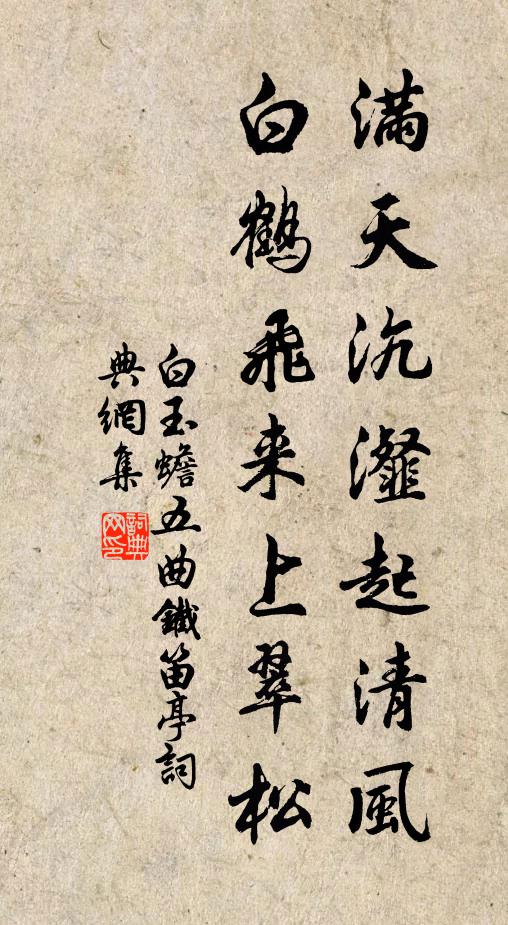 滿天沆瀣起清風
白鶴飛来上翠松
白玉蟾五曲鐵笛亭詞
典網集
詞典网印